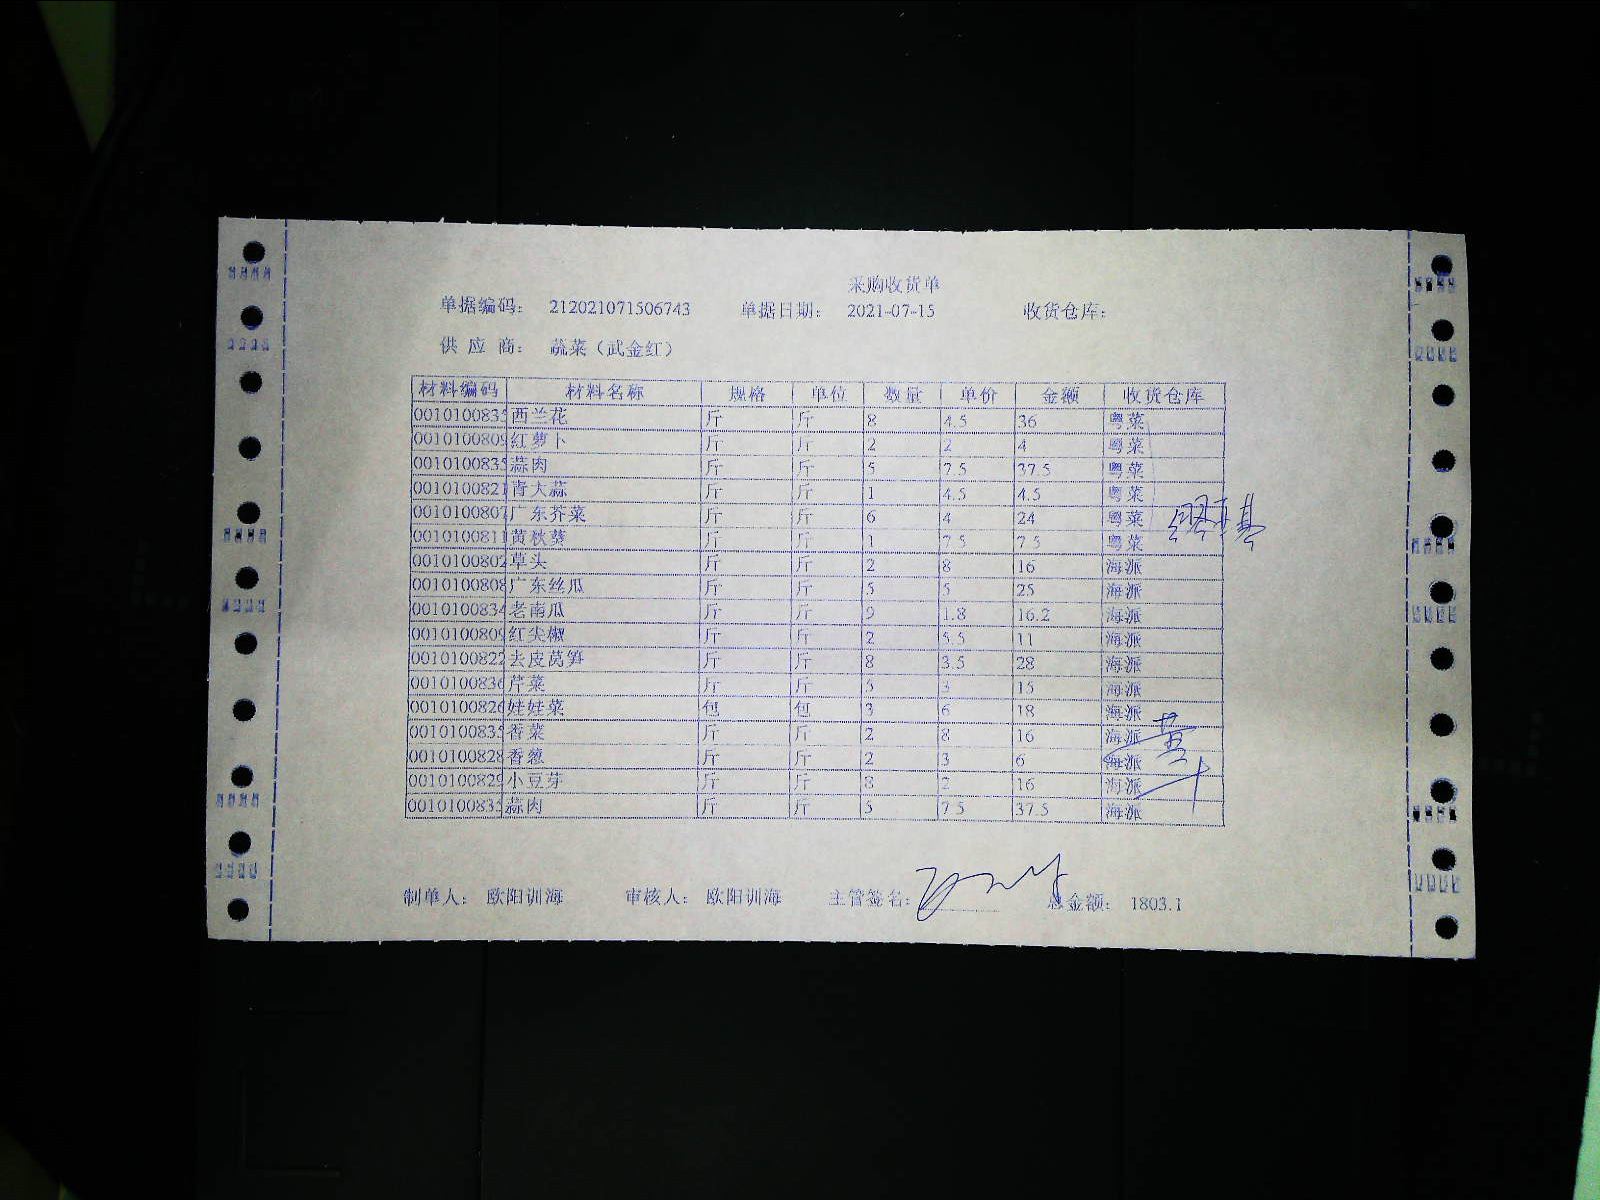 采购收货单
单据编码： 212021071506743 单据日期： 2021-07-15 收货仓库：
供 应 商： 蔬菜（武金红）
材料编码 材料名称 规格 单位 数量 单价 金额 收货仓库
0010100835 西兰花 斤 斤 8 4.5 36 粤菜
0010100809 红萝卜 斤 斤 2 2 4 粤菜
0010100835 蒜肉 斤 斤 5 7.5 37.5 粤菜
0010100821 青大蒜 斤 斤 1 4.5 4.5 粤菜
0010100807 广东芥菜 斤 斤 6 4 24 粤菜
0010100811 黄秋葵 斤 斤 1 7.5 7.5 粤菜
0010100802 草头 斤 斤 2 8 16 海派
0010100808 广东丝瓜 斤 斤 5 5 25 海派
0010100834 老南瓜 斤 斤 9 1.8 16.2 海派
0010100809 红尖椒 斤 斤 2 5.5 11 海派
0010100822 去皮莴笋 斤 斤 8 3.5 28 海派
0010100836 芹菜 斤 斤 5 3 15 海派
0010100826 娃娃菜 包 包 3 6 18 海派
0010100835 香菜 斤 斤 2 8 16 海派
0010100828 香葱 斤 斤 2 3 6 海派
0010100829 小豆芽 斤 斤 8 2 16 海派
0010100835 蒜肉 斤 斤 5 7.5 37.5 海派
制单人： 欧阳训海 审核人： 欧阳训海 主管签名： 总金额： 1803.1